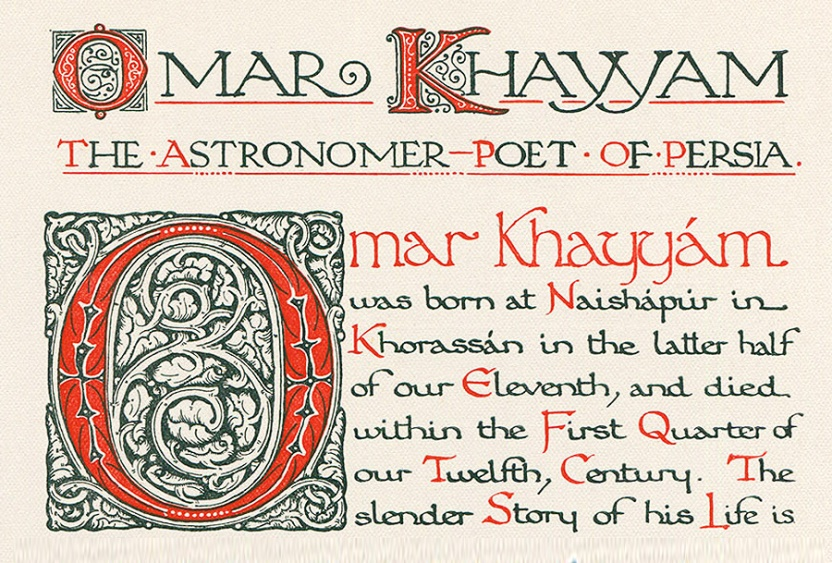 OMAR KHAYYAM
THE·ASTRONOMER—POET·OF·PERSIA.
Omar Khayyám
was born at Naishápúr in
Khorassán in the latter half
of our Eleventh, and died
within the First Quarter of
our Twelfth, Century. The
slender Story of his Life is